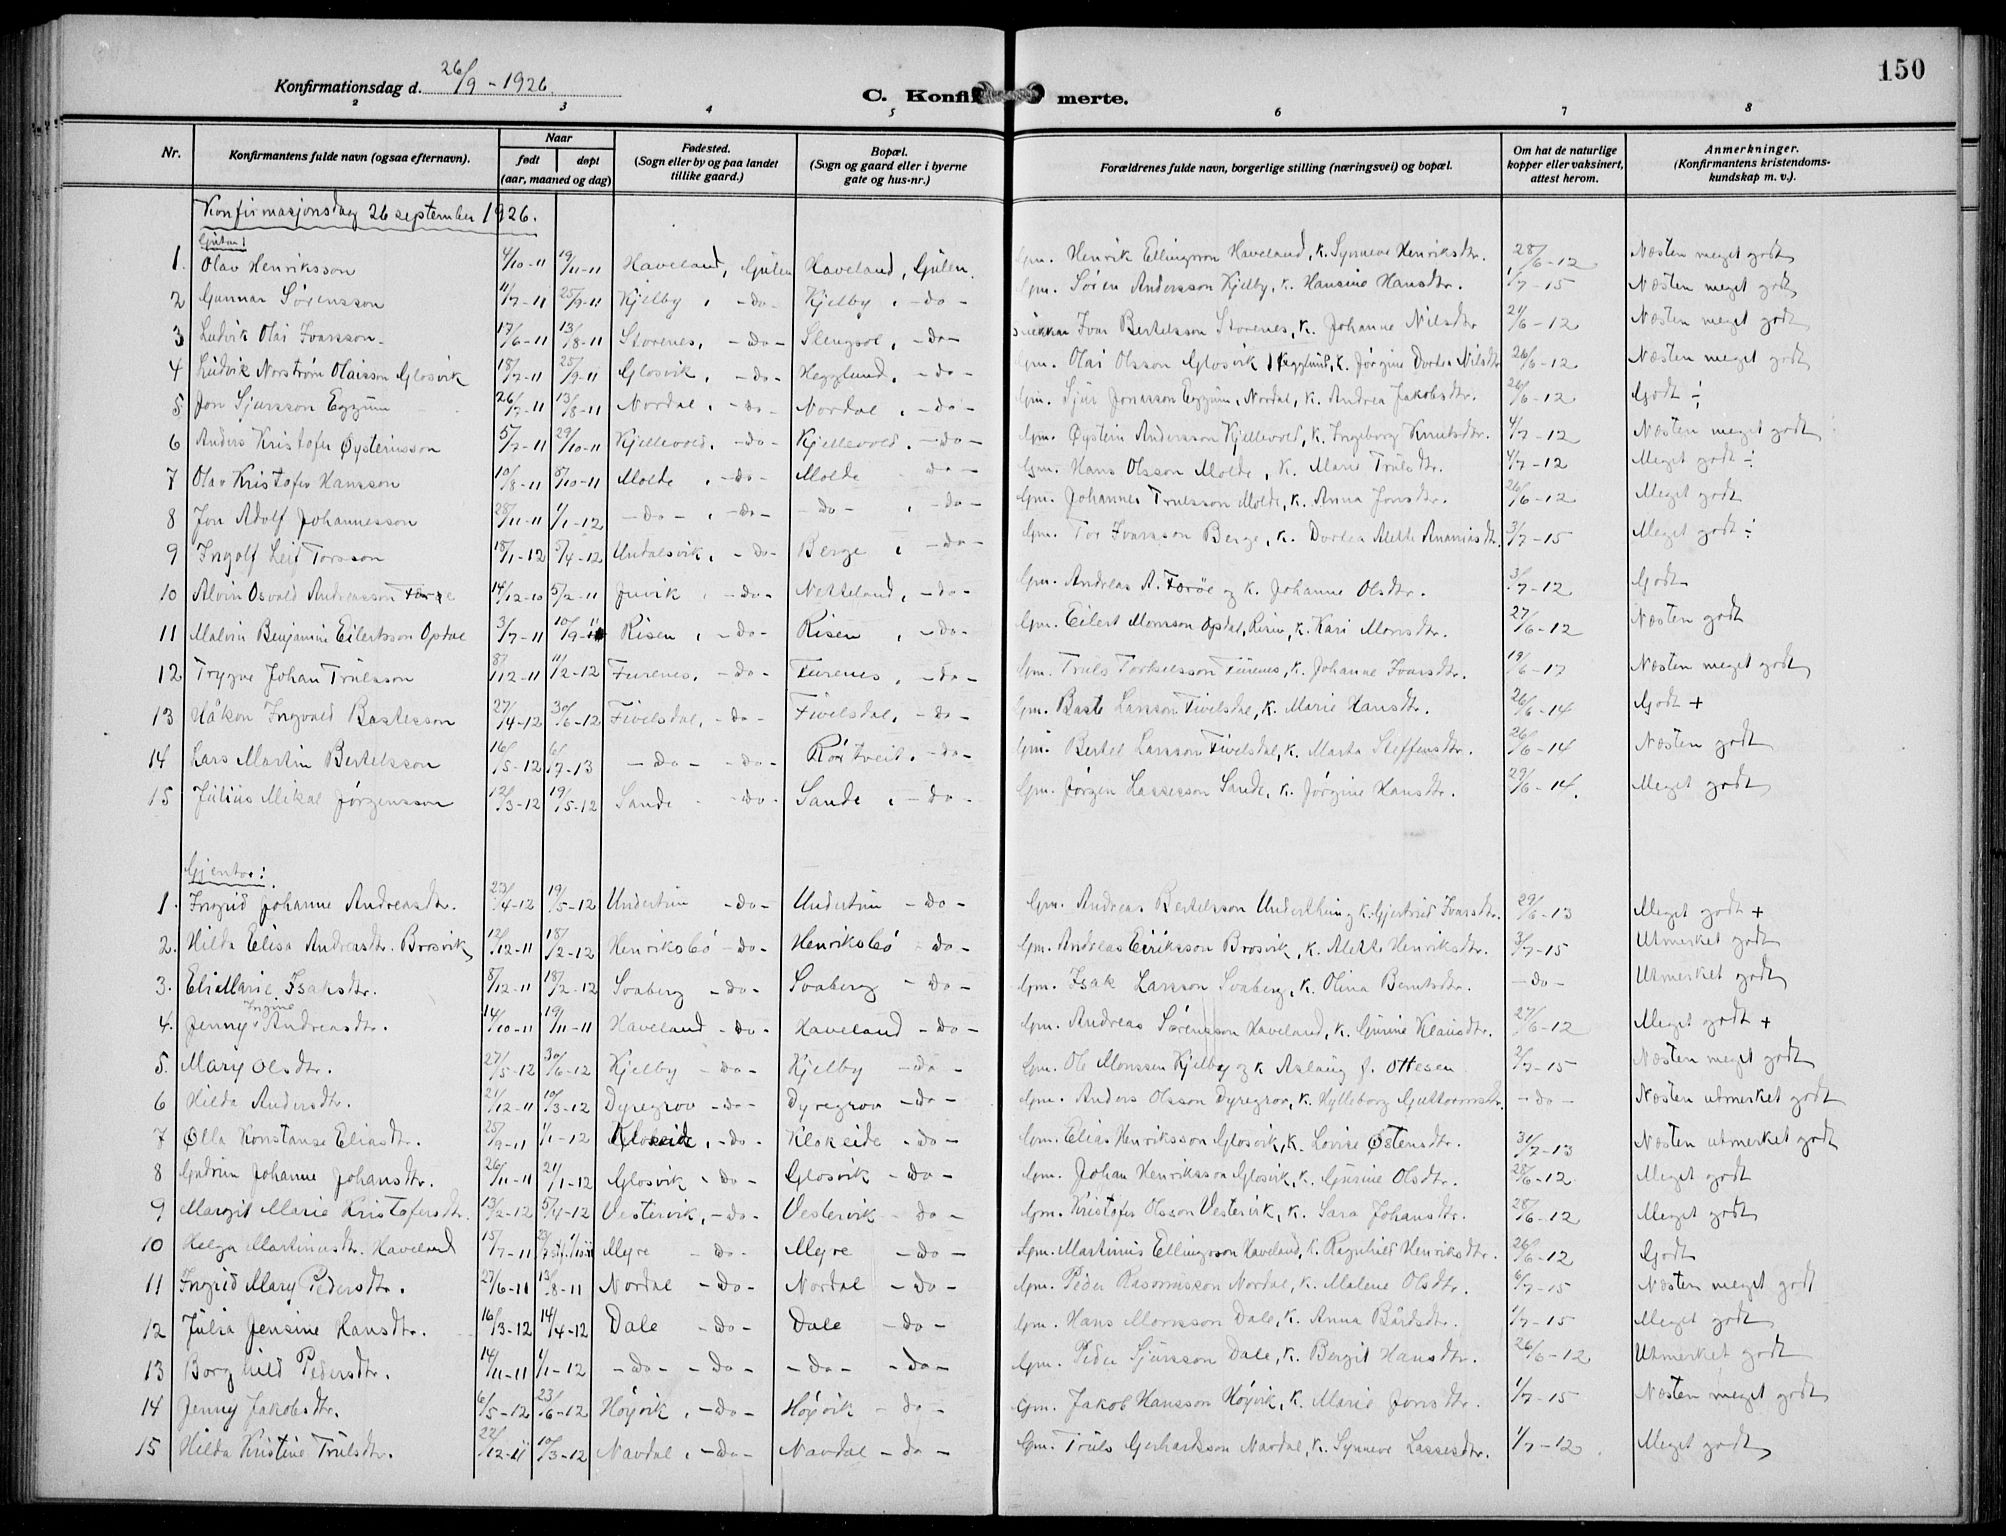 150
Konfirmationsdag d. 26/9 - 1926
C. Konfirmerte.
2 3 4 5 6 7 8
Nr. Konfirmantens fulde navn (ogsaa efternavn). Naar født døpt (aar, maaned og dag) Fødested. (Sogn eller by og paa landet tillike gaard.) Bopæl. (Sogn og gaard eller i byerne gate og hus-nr.) Forældrenes fulde navn, borgerlige stilling (næringsvei) og bopæl. Om hat de naturlige kopper eller vaksinert, attest herom. Anmerkninger. (Konfirmantens kristendoms-kundskap m. v.).
Konfirmasjonsdag 26 september 1926.
Gutar:
1. Olav Henriksson 4/10-11 19/11-11 Haveland, Gulen Haveland, Gulen. Gm. Henrik Ellingsson Haveland, K. Synneve Henriksdtr. 28/6-12 Næsten meget godt
2 Gunnar Sørensson 11/7-11 25/9-11 Kjelby, -do- Kjelby, -do- Gm. Søren Andersson Kjelby, K. Hansine Hansdtr. 1/7-15 Næsten meget godt
3 Ludvik Olai Ivarsson 17/6-11 13/8-11 Storenes, -do- Slengsol, -do- Ivar Bertelsson Storenes, K. Johanne Nilsdtr 21/6-12 Næsten meget godt
4 Ludvik Norstrøm Olaisson Glosvik 18/7-11 25/9-11 Glosvik, -do- Hegglund, -do- Gm. Olai Olsson Glosvik, Hegglund, K. Jørgine Dortea Nilsdtr 26/6-12 Næsten meget godt
5 Jon Sjursson Eggum 26/7-11 13/8-11 Nordal, -do- Nordal, -do- Gm. Sjur Jonasson Eggum, Nordal, K. Andrea Jakobsdtr. 26/6-12 Godt ÷
6 Anders Kristofer Øysteinsson 5/7-11 29/10-11 Kjellevold, -do- Kjellevold, -do- Gm. Øystein Andersson Kjellevold, K. Ingeborg Knutsdtr. 4/7-12 Næsten meget godt
7 Olav Kristofer Hansson 10/8-11 8/10-11 Molde, -do- Molde -do- Gm. Hans Olsson Molde, K. Marie Trulsdtr. 4/7-12 Meget godt ÷
8 Jon Adolf Johannesson 28/11-11 1/1-12 -do-, -do- -do-, -do- Gm. Johannes Trulsson Molde, K. Anna Jonsdtr. 26/6-12 Meget godt
9 Ingolf Leif Torsson 18/1-12 8/4-12 Undalsvik, -do- Berge, -do- Gm. Tor Ivarsson Berge, K. Dortea Alette Ananiasdtr. 3/7-15 Meget godt ÷
10 Alvin Osvald Andreasson Færøe 14/12-10 5/2-11 Juvik, -do- Netteland, -do- Gm. Andreas A. Færøe og K. Johanne Olsdtr. 3/7-12 Godt
11 Malvin Benjamin Eilertsson Opdal 3/7-11 10/9-11 Risen, -do- Risen, -do- Gm. Eilert Monsson Opdal, Risen, K. Kari Monsdtr. 27/6-12 Næsten godt
12 Trygve Johan Trulsson 8/12-11 11/2-12 Furenes, -do- Furenes, -do- Gm. Truls Torkelsson Furenes, K. Johanne Ivarsdtr. 19/6-17 Næsten meget godt
13 Håkon Ingvald Bastesson 27/4-12 30/6-12 Fivelsdal, -do- Fivelsdal, -do- Gm. Baste Larsson Fivelsdal, K. Marie Hansdtr. 26/6-14 Godt +
14 Lars Martin Bertelsson 16/5-12 6/7-13 -do- -do- Rørtveit, -do- Gm. Bertel Larsson Fivelsdal, K. Marta Steffensdtr. 26/6-14 Næsten godt
15 Julius Mikal Jørgensson 12/3-12 19/5-12 Sande -do- Sande, -do- Gm. Jørgen Lassesson Sande, K. Jørgine Hansdtr. 29/6-14. Meget godt
Gjentor:
1. Ingrid Johanne Andreasdtr. 23/4-12 19/5-12 Undertun -do- Undertun -do- Gm. Andreas Bertelsson Undertun og K. Gjertrud Ivarsdtr. 29/6-13 Meget godt +
2. Hilda Elisa Andreasdtr. Brosvik 12/12-11 18/2-12 Henriksbø -do- Henriksbø -do- Gm. Andreas Eiriksson Brosvik, K. Alette Henriksdtr. 3/7-15 Utmerket godt
3. Eli Marie Isaksdtr. 8/12-11 18/2-12 Svaberg -do- Svaberg -do- Gm. Isak Larsson Svaberg, K. Olina Berntsdtr. -do- Utmerket godt
4. Jenny Ingine Andreasdtr. 14/10-11 19/11-11 Haveland -do- Haveland -do- Gm. Andreas Sørensson Haveland, K. Gurine Klausdtr. 27/6-12 Meget godt +
5. Mary Olsdtr. 27/5-12 30/6-12 Kjelby -do- Kjelby -do- Gm. Ole Monssen Kjelby og K Aslaug f. Ottesen 2/7-15 Næsten meget godt
6 Hilda Andersdtr. 21/12-11 10/3-12 Dyregrov -do- Dyregrov -do- Gm. Anders Olsson Dyregrov, K. Hylleborg Guttormsdtr. -do- Næsten utmerket godt
7 Olla Konstanse Eliasdtr. 25/9-11 1/1-12 Klokeide, -do- Klokeide -do- Gm. Elias Henriksson Glosvik, K. Lovise Østensdtr. 31/7-13 Næsten utmerket godt
8 Gudrun Johanne Johansdtr. 26/11-11 21/1-12 Glosvik -do- Glosvik -do- Gm. Johan Henriksson Glosvik, K. Gurine Olsdtr. 28/6-12 Meget godt
9 Margit Marie Kristofersdtr. 13/2-12 5/4-12 Vestervik, -do- Vestervik -do- Gm. Kristofer Olsson Vestervik, K. Sara Johansdtr. 28/6-12 Meget godt
10 Helga Martinusdtr. Haveland 15/7-11 Myre -do- Myre -do- Gm. Martinus Ellingsson Haveland, K. Ragnhild Henriksdtr. 26/6-12 Godt
11 Ingrid Mary Pedersdtr. 27/6-11 13/8-11 Nordal -do- Nordal -do- Gm. Peder Rasmusson Nordal, K. Malene Olsdtr. 6/7-15 Næsten meget godt
12 Julia Jensine Hansdtr. 16/3-12 14/4-12 Dale -do- Dale -do- Gm. Hans Monsson Dale, K. Anna Bårdsdtr. 1/7-15 Meget godt
13 Borghild Pedersdtr. 14/11-11 1/1-12 -do- -do- -do- -do- Gm. Peder Sjursson Dale, K. Bergit Hansdtr. 26/6-12 Utmerket godt
14 Jenny Jakobsdtr. 6/5-12 23/6-12 Høyvik, -do- Høyvik -do- Gm. Jakob Hansson Høyvik, K. Marie Jonsdtr. 1/7-15 Næsten meget godt
15 Hilda Kristine Trulsdtr. 22/12-11 10/3-12 Navdal, -do- Navdal -do- Gm. Truls Gerhardsson Navdal, K. Synneve Lassesdtr. 1/7-12 Meget godt